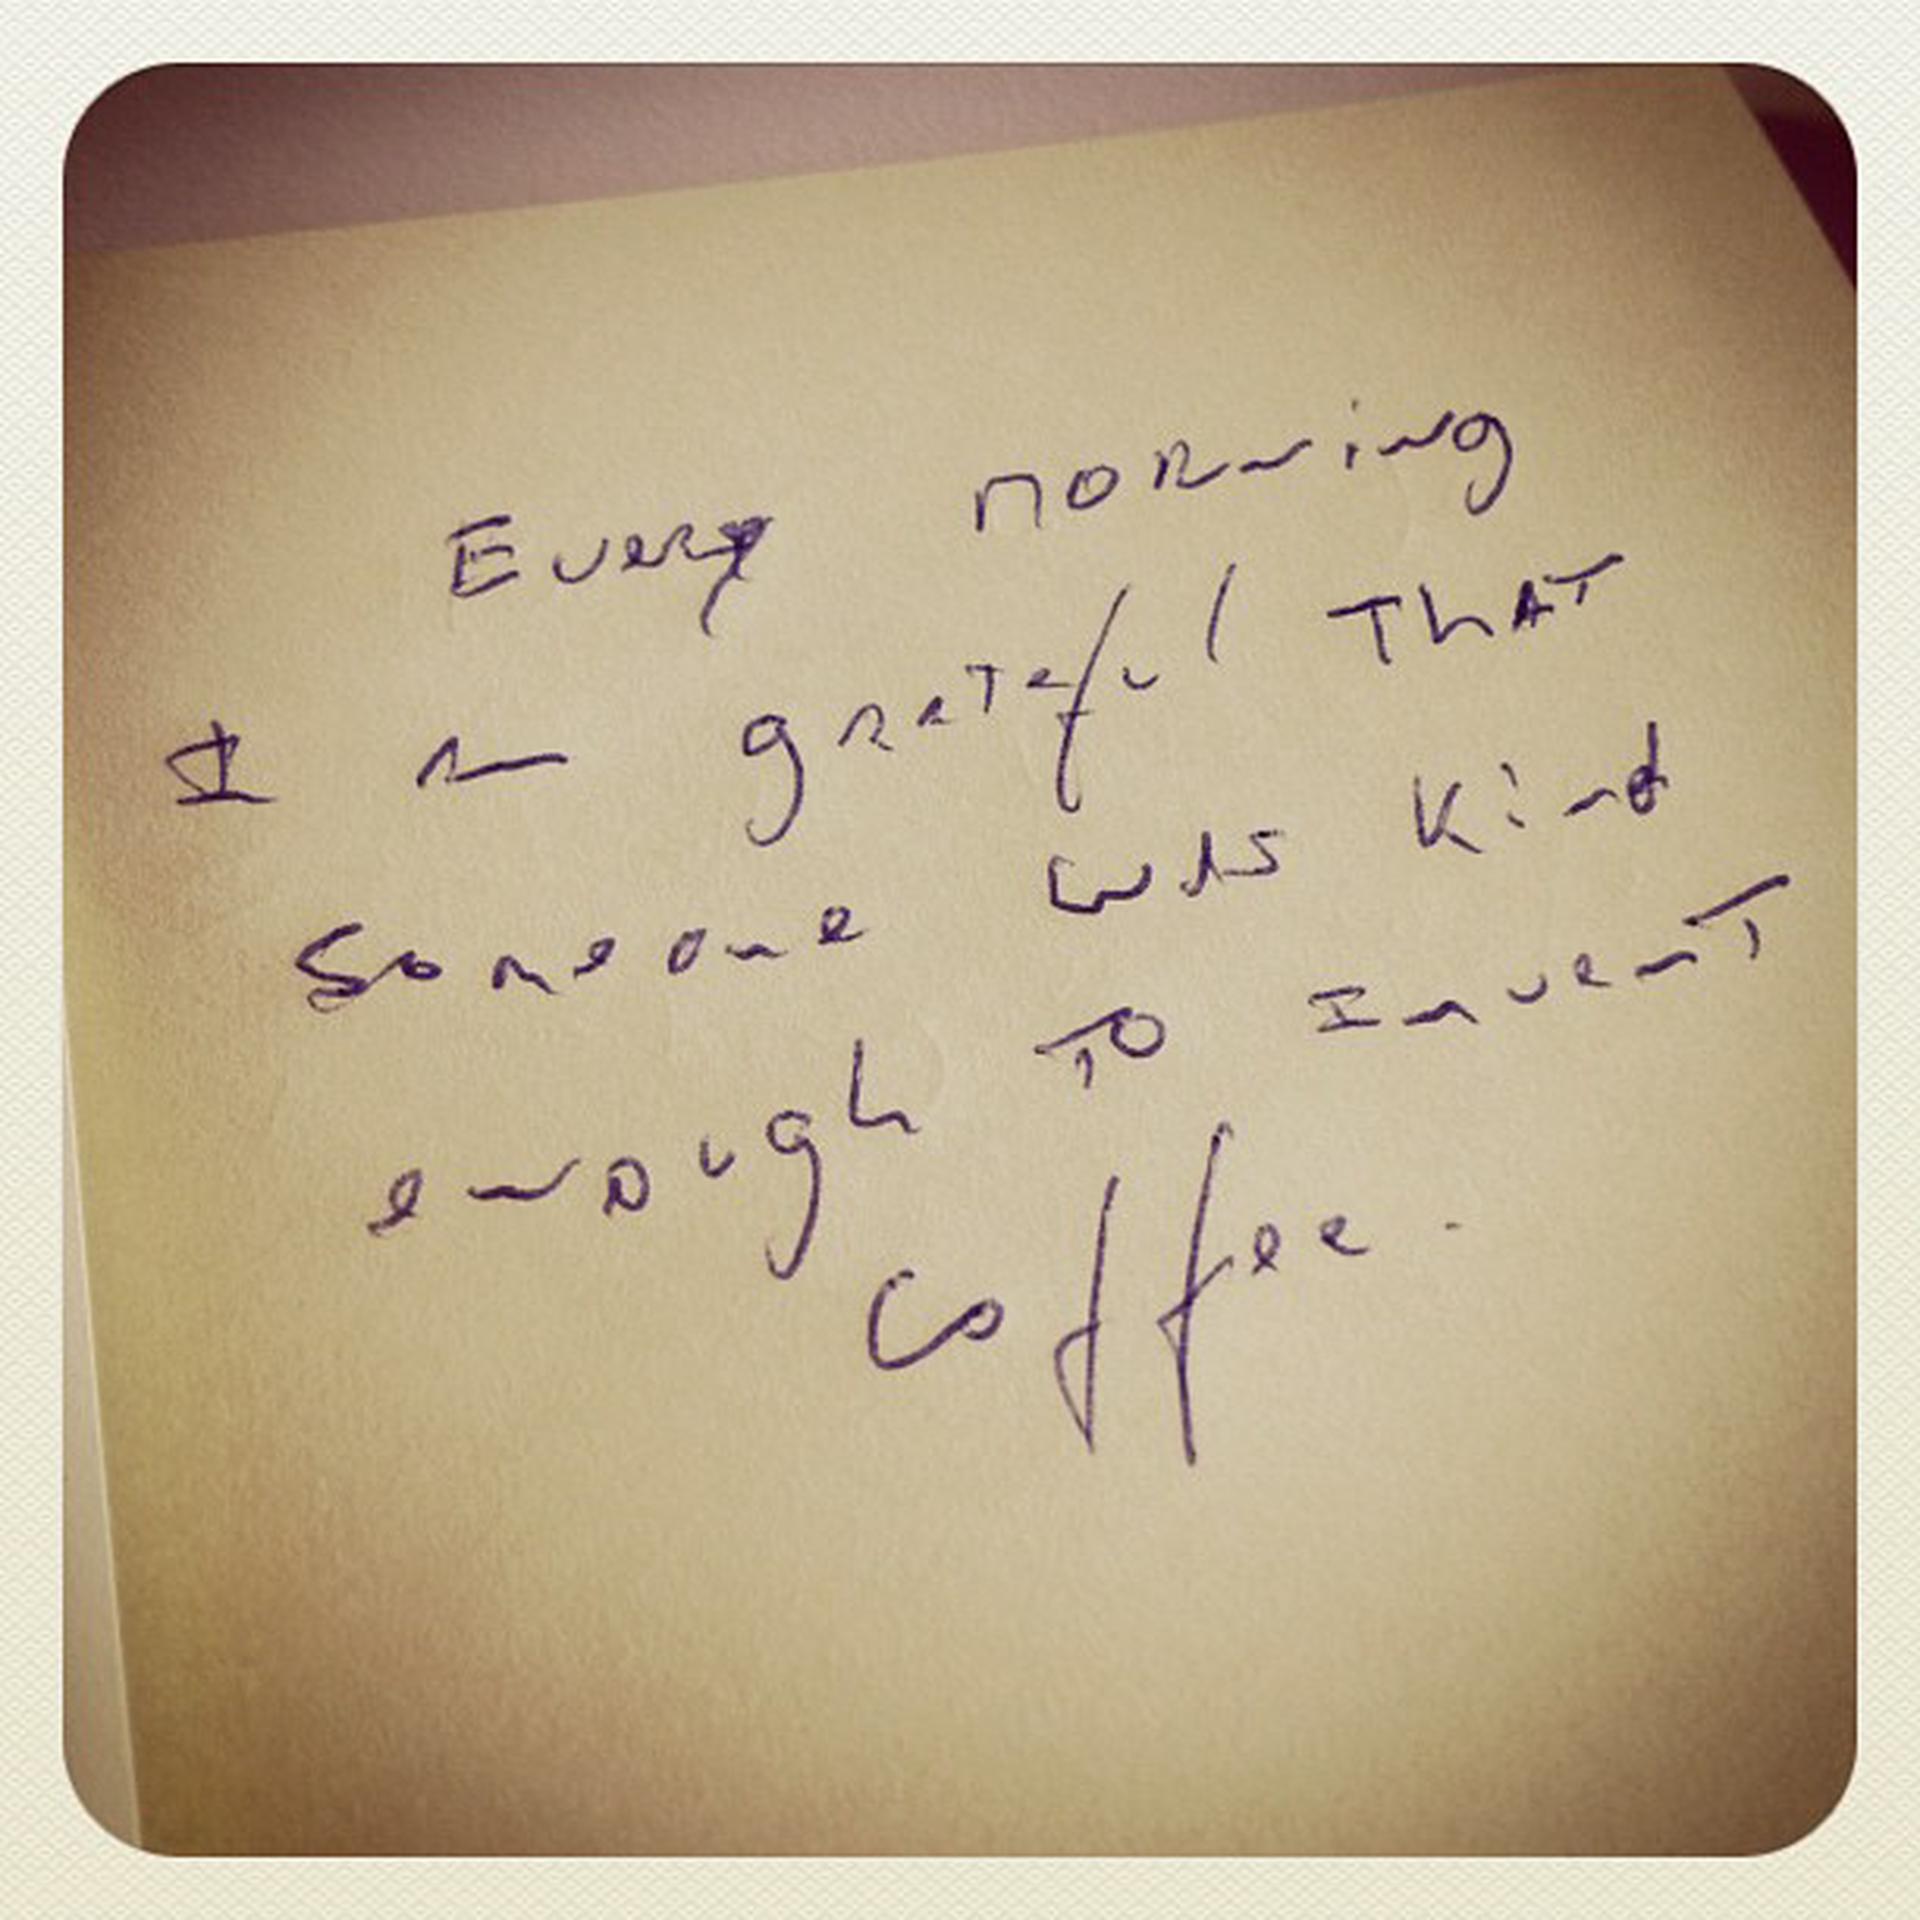 Every morning
I am grateful that
someone was kind
enough to invent
coffee.